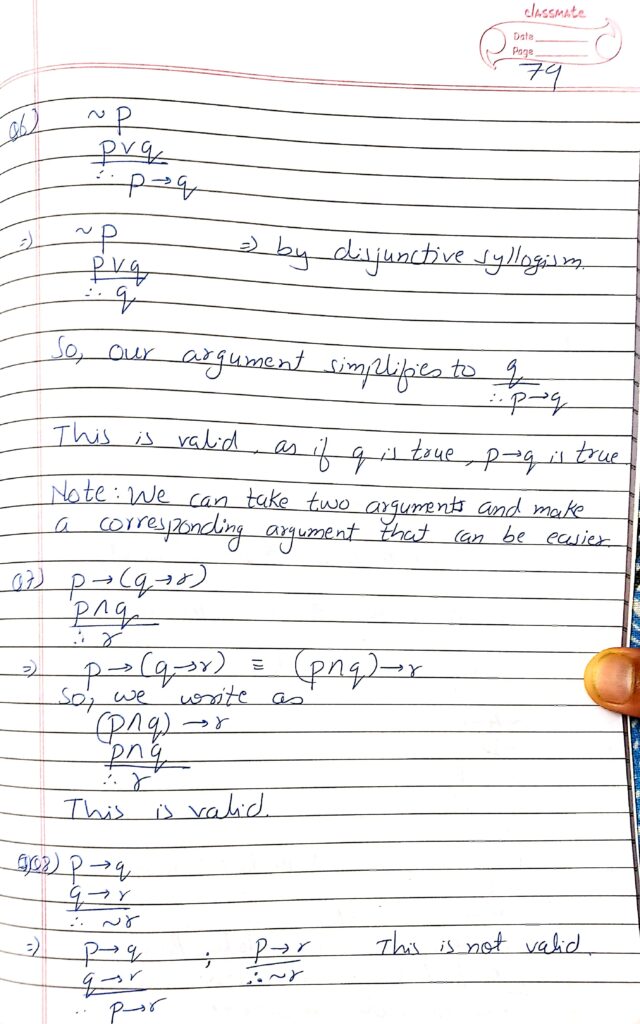 classmate
Date
Page
79
Q6) ~p
p∨q
∴ p→q
⇒) ~p ⇒ by disjunctive syllogism.
p∨q
∴ q
So, our argument simplifies to q
∴ p→q
This is valid, as if q is true, p→q is true
Note: We can take two arguments and make
a corresponding argument that can be easier.
Q7) p→(q→r)
p∧q
∴ r
⇒) p→(q→r) ≡ (p∧q)→r
So, we write as
(p∧q)→r
p∧q
∴ r
This is valid.
Q8) p→q
q→r
∴ ~r
⇒) p→q ; p→r This is not valid.
q→r ∴ ~r
∴ p→r